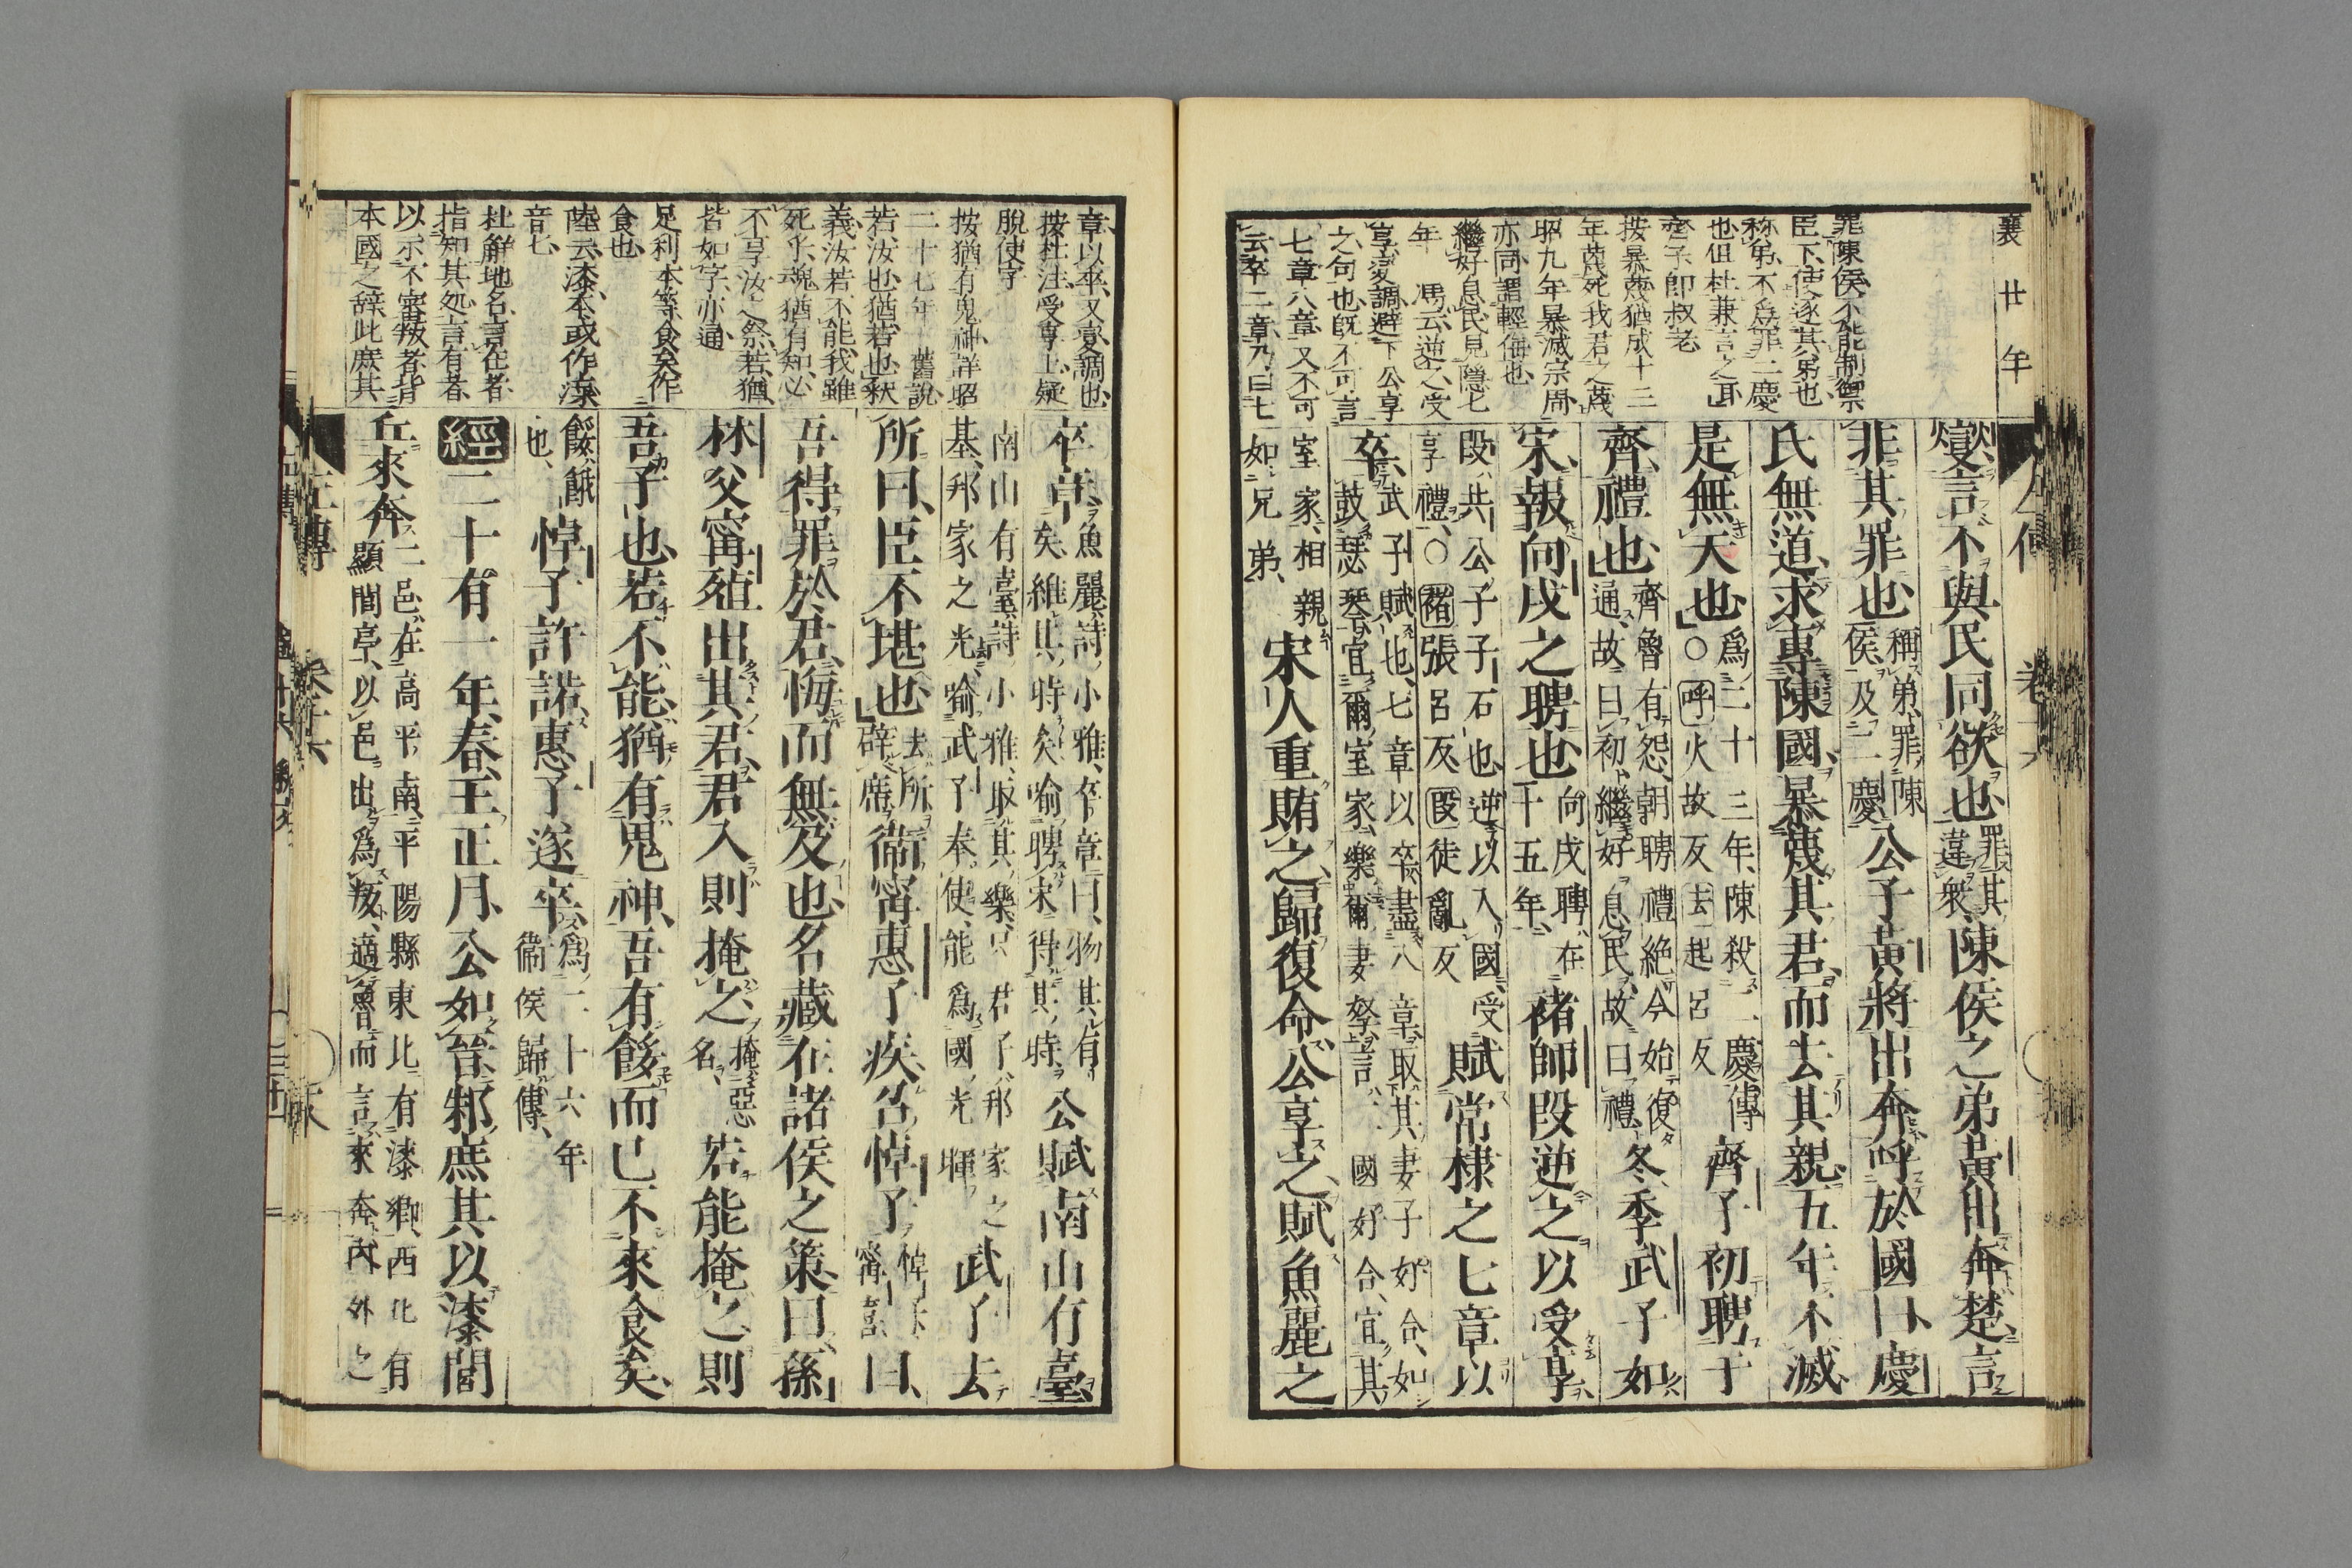 襄廿年
罪陳侯不能制禦
臣下使逐其弟也
稱弟不爲罪二慶
也但杜兼言之耳
齊子卽叔老
按暴蔑猶成十三
年蔑死我君之蔑
昭九年暴滅宗周
亦同謂輕侮也
繼好息民見隱七
年 馮云逆之受
享変調避下公享
之句也旣不可言
七章八章又不可
云卒二章乃曰七
燮言不與民同欲也罪其違衆陳侯之弟黃出奔楚言
非其罪也稱弟罪陳侯及二慶公子黃將出奔呼於國曰慶
氏無道求專陳國暴蔑其君而去其親五年不滅
是無天也爲二十三年陳殺二慶傳○呼火故反去起呂反齊子初聘于
齊禮也齊魯有怨朝聘禮絕今始復通故曰初繼好息民故曰禮冬季武子如
宋報向戌之聘也向戌聘在十五年褚師段逆之以受享
段共公子子石也逆以入國受享禮○褚張呂反段徒亂反賦常棣之七章以
卒武子賦也七章以卒盡八章取其妻子好合如鼓瑟琴宜爾室家樂爾妻帑言二國好合宜其
室家相親如兄弟宋人重賄之歸復命公享之賦魚麗之
章以卒又変調也
按杜注受享上疑
脫使字
按猶有鬼神詳昭
二十七年 舊說
若汝也猶若也釈
義汝若不能我雖
死乎魂猶有知必
不享汝之祭若猶
皆如字亦通
足利本等食矣作
食也
陸云漆本或作淶
音七
杜觧地名言在者
指知其処言有者
以示不審叛者背
本國之辭此厥其
卒章魚麗詩小雅卒章曰物其有矣維其時矣喻聘宋得其時公賦南山有臺
南山有臺詩小雅取其樂只君子邦家之基邦家之光喻武子奉使能爲國光暉武子去
所曰臣不堪也去所辟席衞甯惠子疾召悼子悼子甯喜曰
吾得罪於君悔而無及也名藏在諸侯之策曰孫
林父甯殖出其君君入則掩之掩惡名若能掩之則
吾子也若不能猶有鬼神吾有餒而已不來食矣
餒餓也悼子許諾惠子遂卒爲二十六年衞侯歸傳
經二十有一年春王正月公如晉邾庶其以漆閭
丘來奔二邑在高平南平陽縣東北有漆鄉西北有顯閭亭以邑出爲叛適魯而言來奔內外之